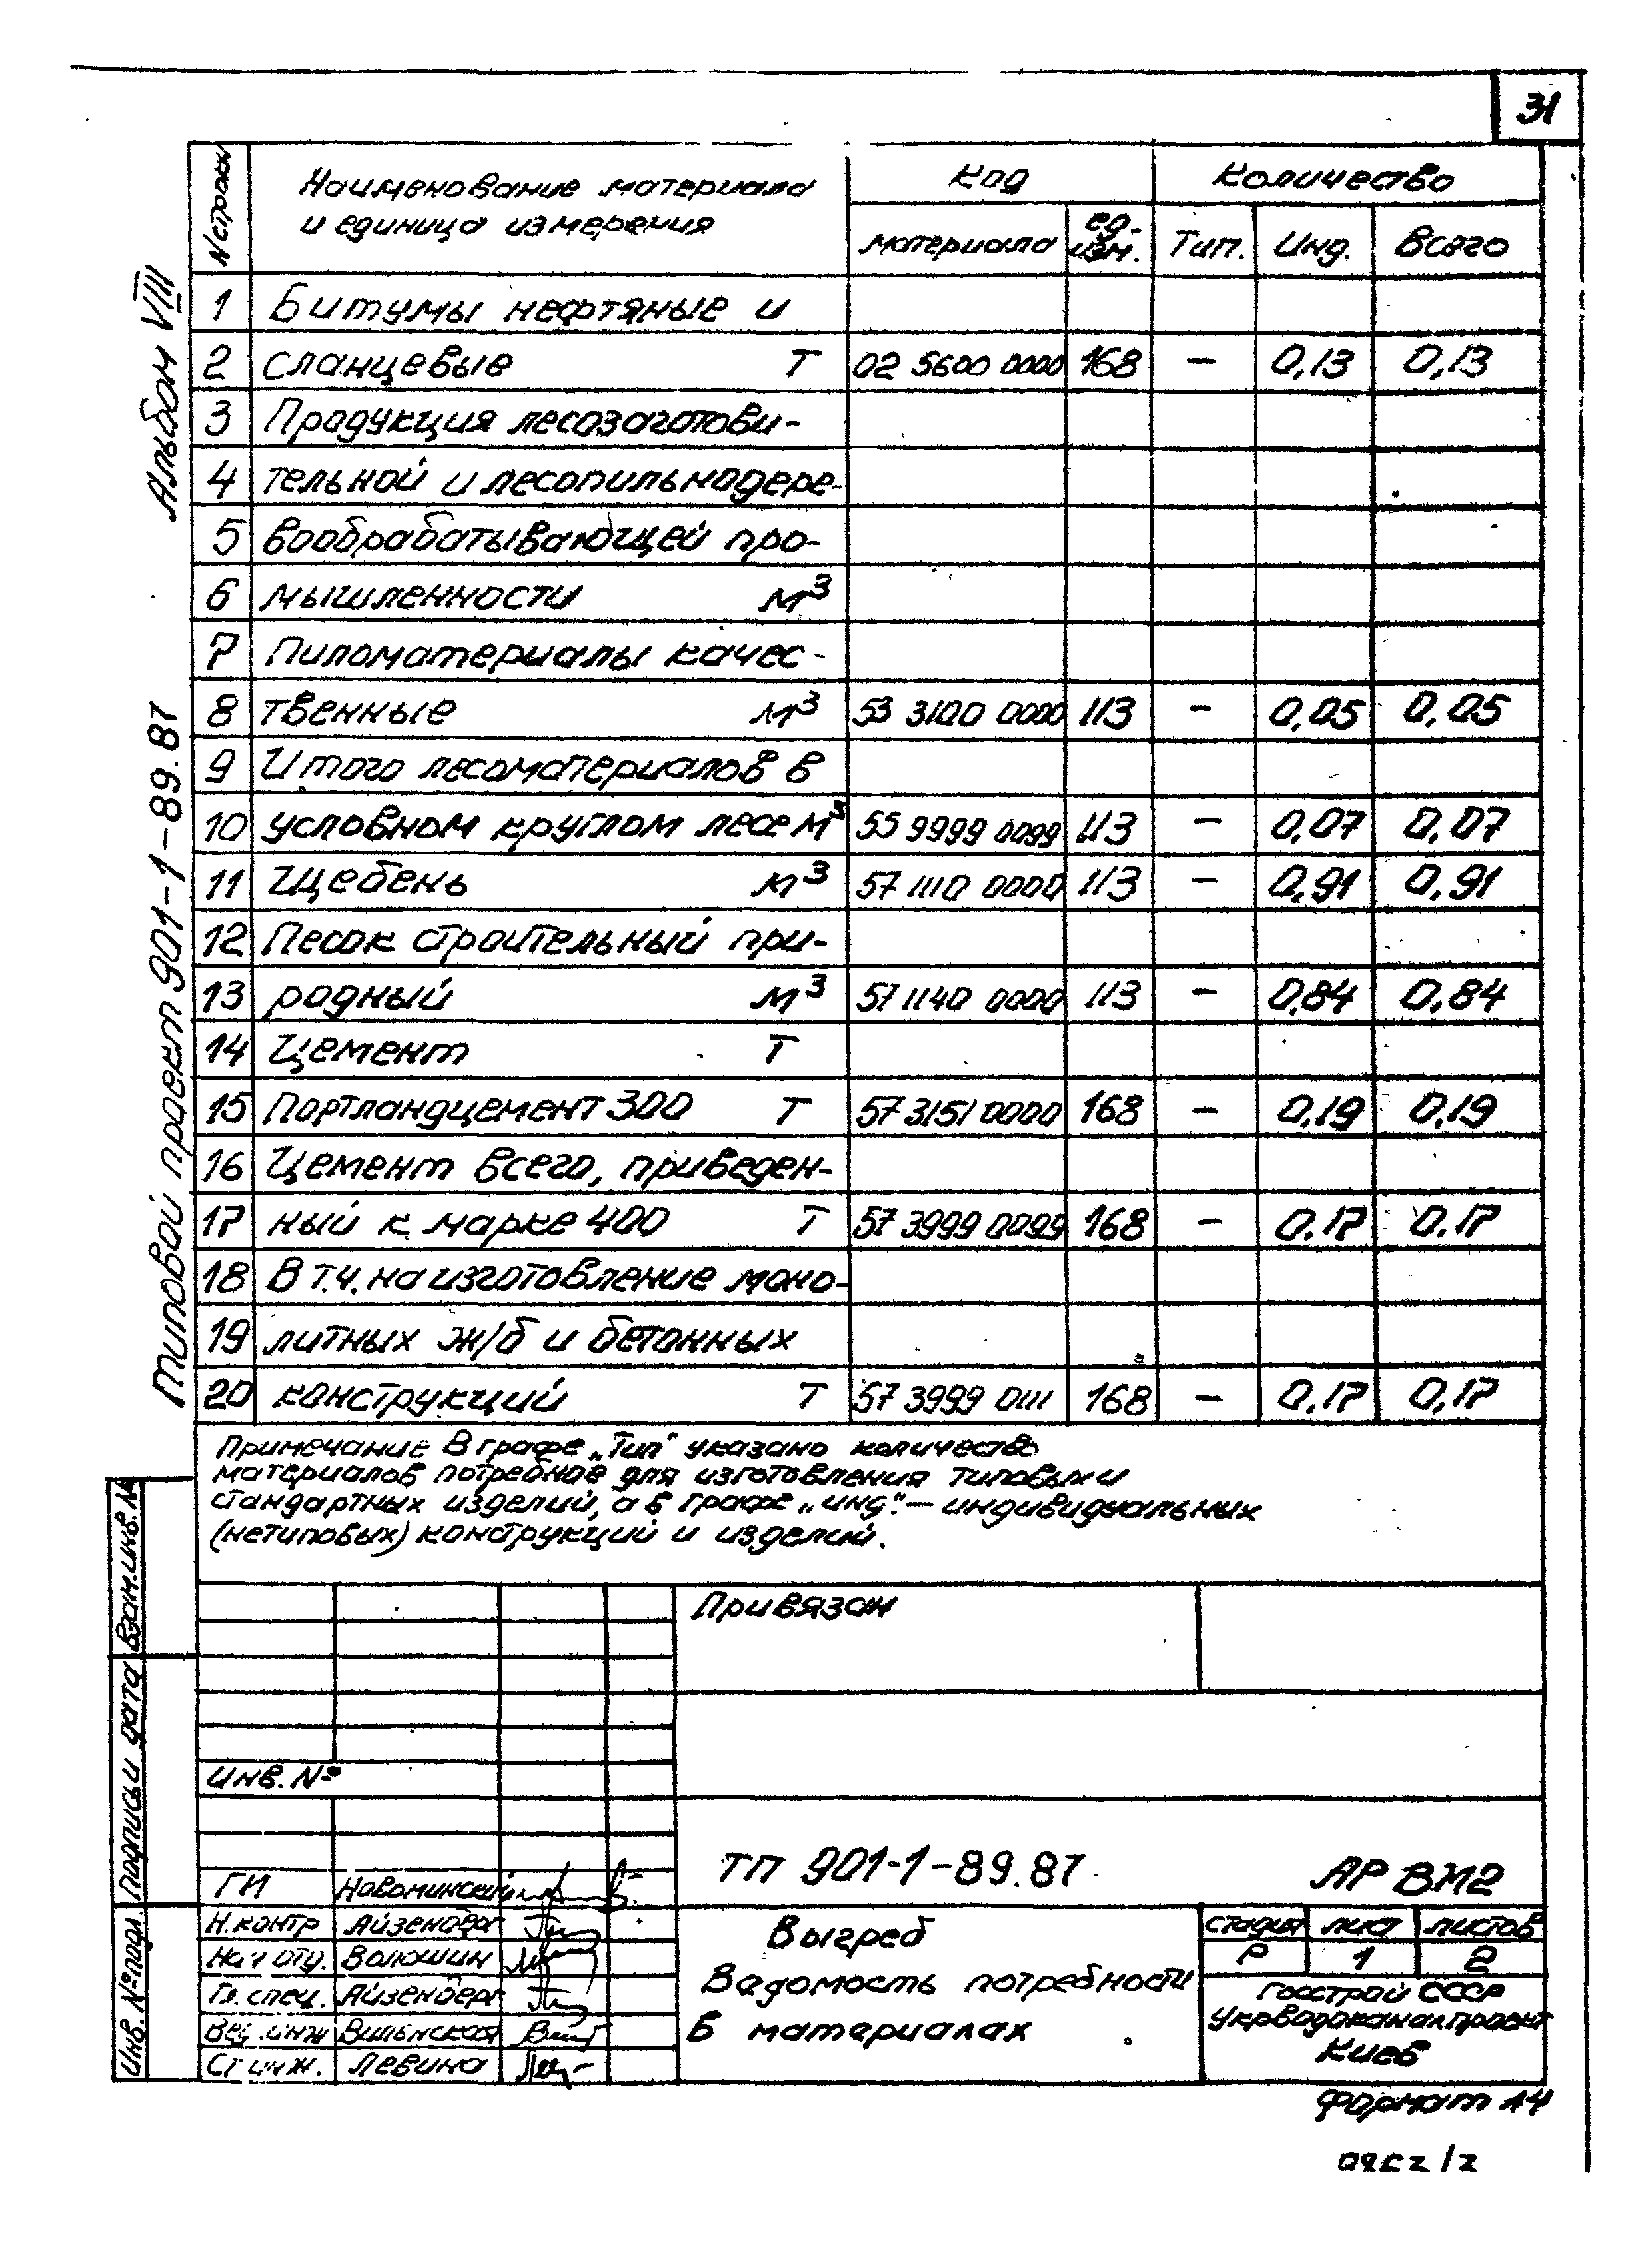 31
Альбом VIII
Типовой проект 901-1-89.87
N строки
Наименование материала
и единица измерения
Код
Количество
материала
ед. изм.
Тип.
Инд.
Всего
1 Битумы нефтяные и
2 сланцевые Т 02 5600 0000 168 – 0,13 0,13
3 Продукция лесозаготови-
4 тельной и лесопильнодере-
5 вообрабатывающей про-
6 мышленности м³
7 Пиломатериалы качес-
8 твенные м³ 53 3100 0000 113 – 0,05 0,05
9 Итого лесоматериалов в
10 условном круглом лесе м³ 55 9999 0099 113 – 0,07 0,07
11 Щебень м³ 57 1110 0000 113 – 0,91 0,91
12 Песок строительный при-
13 родный м³ 57 1140 0000 113 – 0,84 0,84
14 Цемент Т
15 Портландцемент 300 Т 57 3151 0000 168 – 0,19 0,19
16 Цемент всего, приведен-
17 ный к марке 400 Т 57 3999 0099 168 – 0.17 0.17
18 В т.ч. на изготовление моно-
19 литных ж/б и бетонных
20 конструкций Т 57 3999 0111 168 – 0,17 0,17
Примечание В графе „Тип" указано количество
материалов потребное для изготовления типовых и
стандартных изделий, а в графе „инд." – индивидуальных
(нетиповых) конструкций и изделий.
Взам.инв.№
Подпись и дата
Инв. № подл.
Привязан
Инв. №
ТП 901-1-89.87 АР ВМ2
ГИ Новоминский
Н.контр Айзенберг
Нач отд. Волошин
Гл. спец. Айзенберг
Вед. инж Виленская
Ст инж. Левина
Выгреб
Ведомость потребности
в материалах
стадия лист листов
Р 1 2
Госстрой СССР
Укрводоканалпроект
Киев
Формат А4